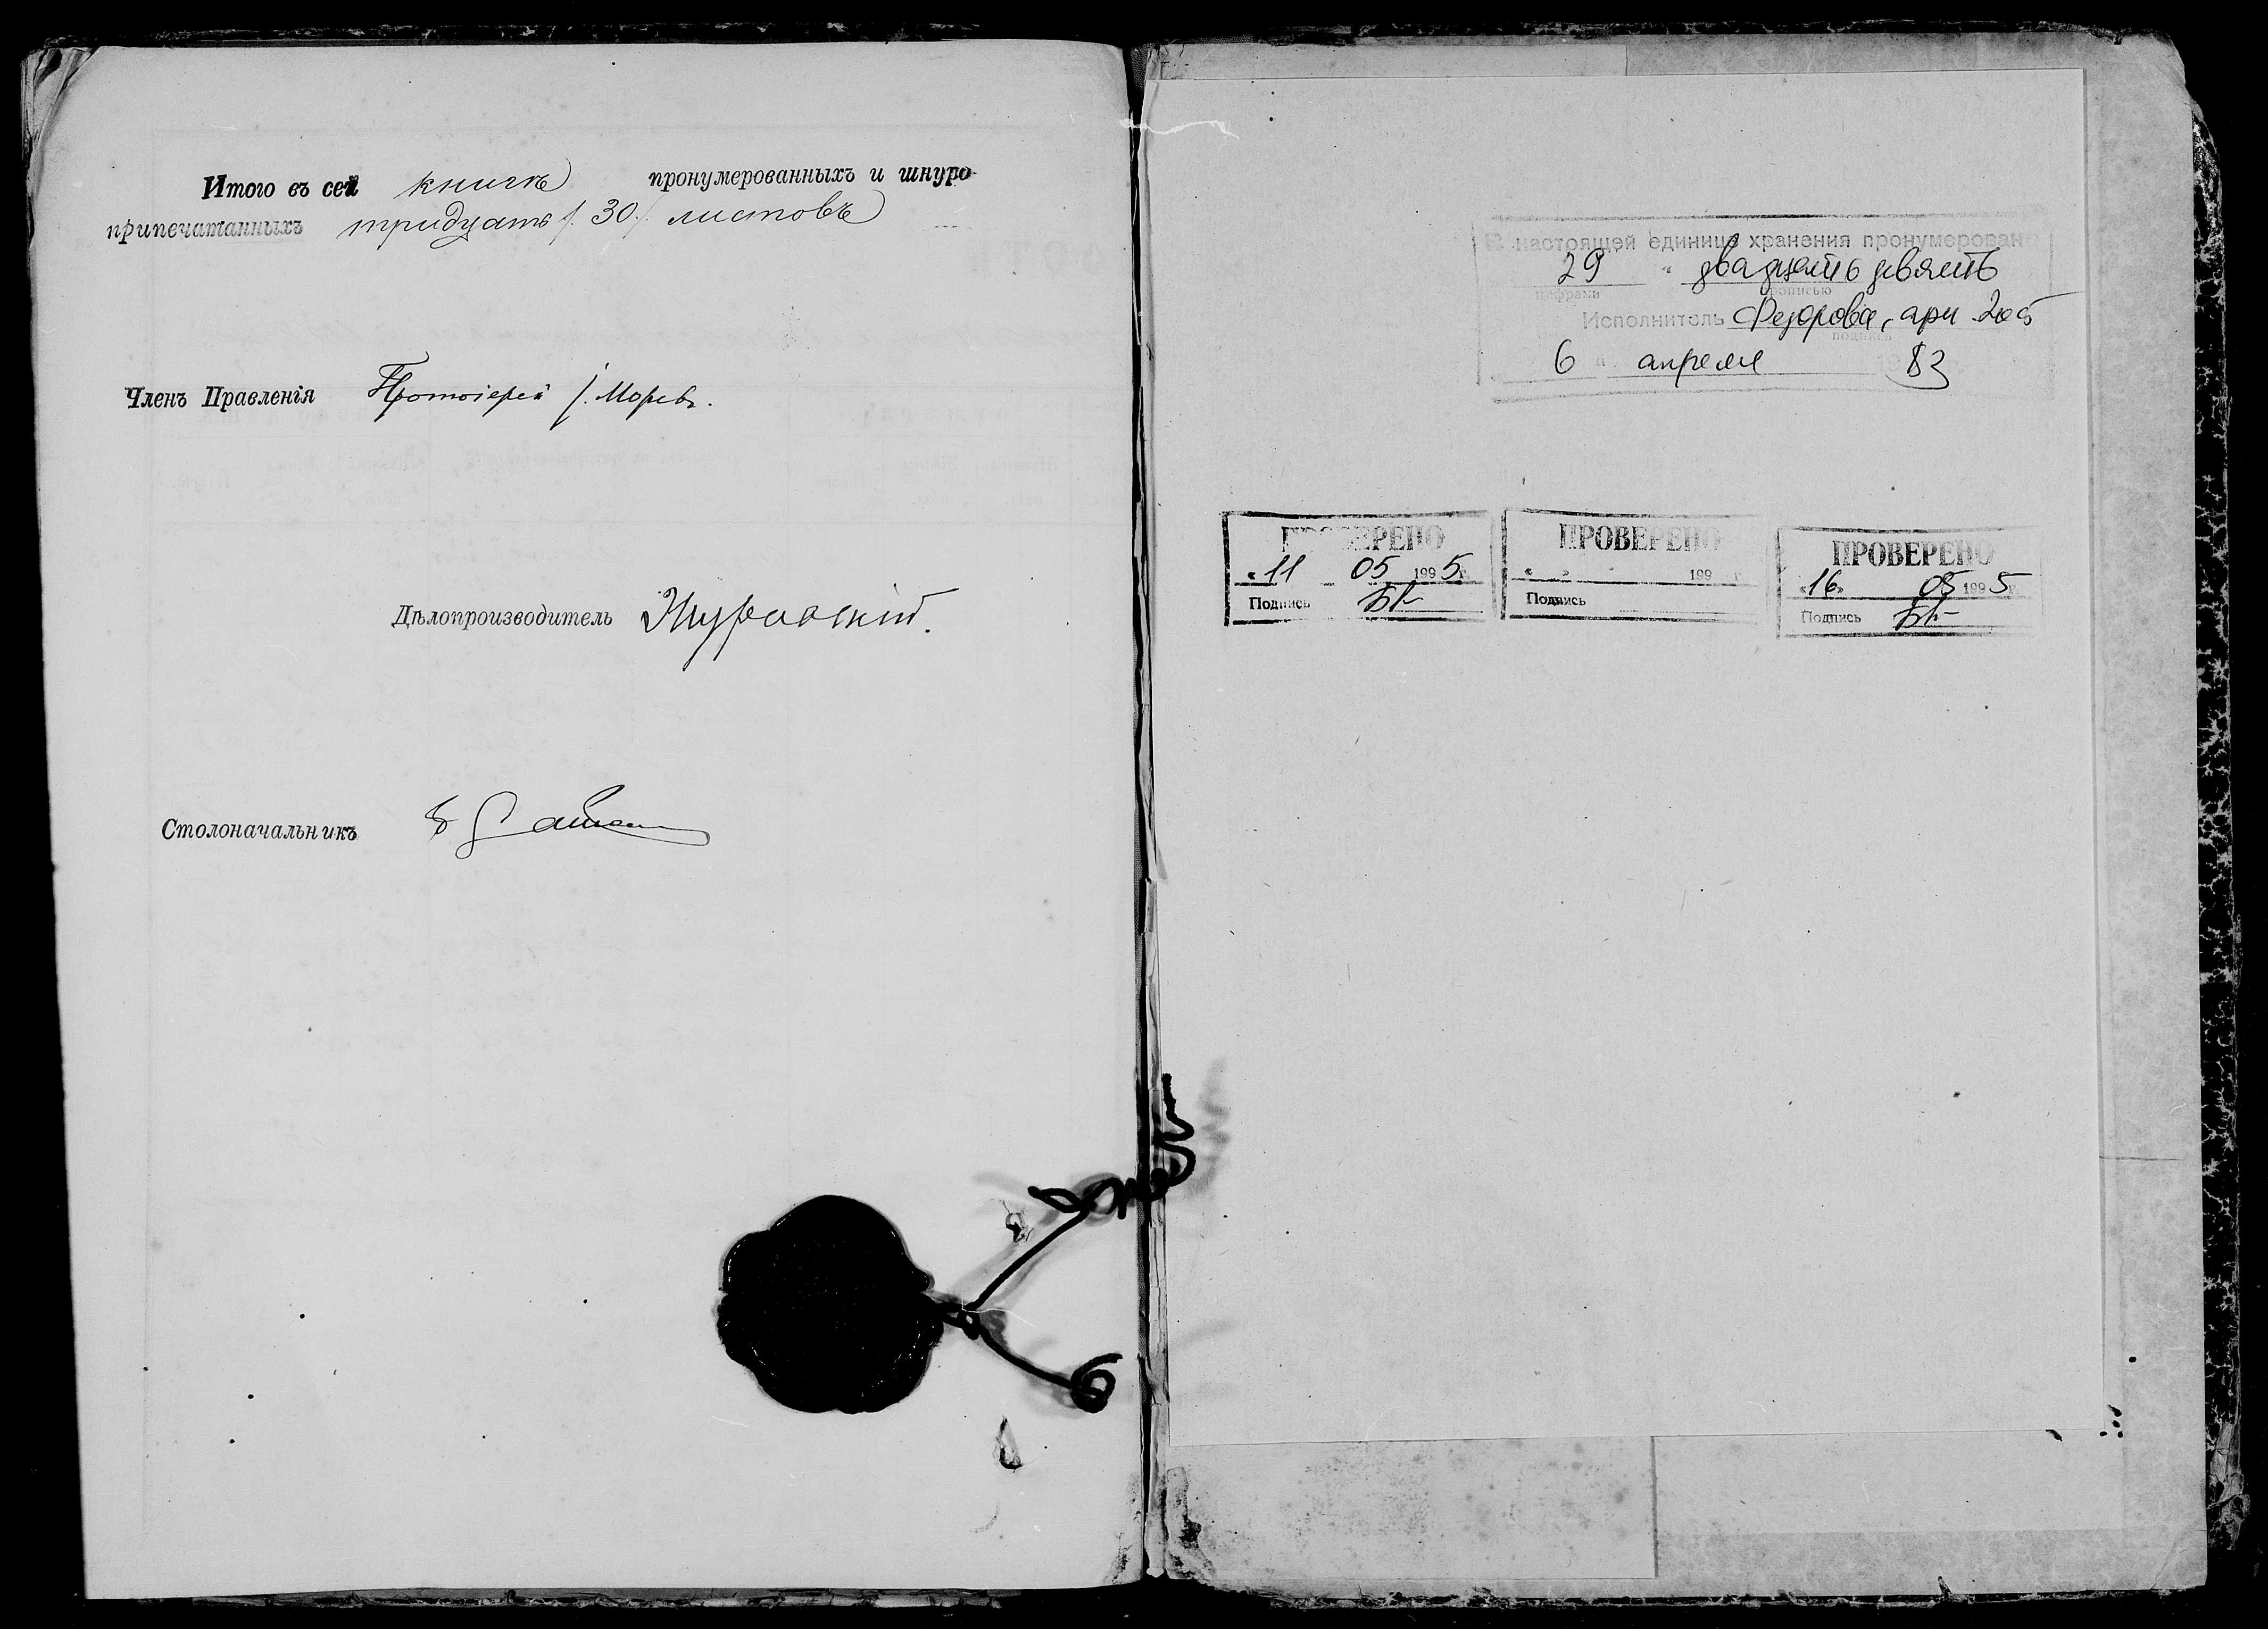 Итого въ сей книгѣ пронумерованныхъ и шнуро-
припечатанныхъ тридцать /.30./ листовъ
Членъ Правленія Протоіерей І. Моревъ.
Дѣлопроизводитель Журавскій.
Столоначальникъ
В настоящей единице хранения пронумеровано
29 " двадцать девять
цифрами прописью
Исполнитель Федорова,
подпись
6 " апреля 1983
ПРОВЕРЕНО
«11 05 1995г.
Подпись
ПРОВЕРЕНО
« » 199 г.
Подпись
ПРОВЕРЕНО
«16» 05 1995г.
Подпись